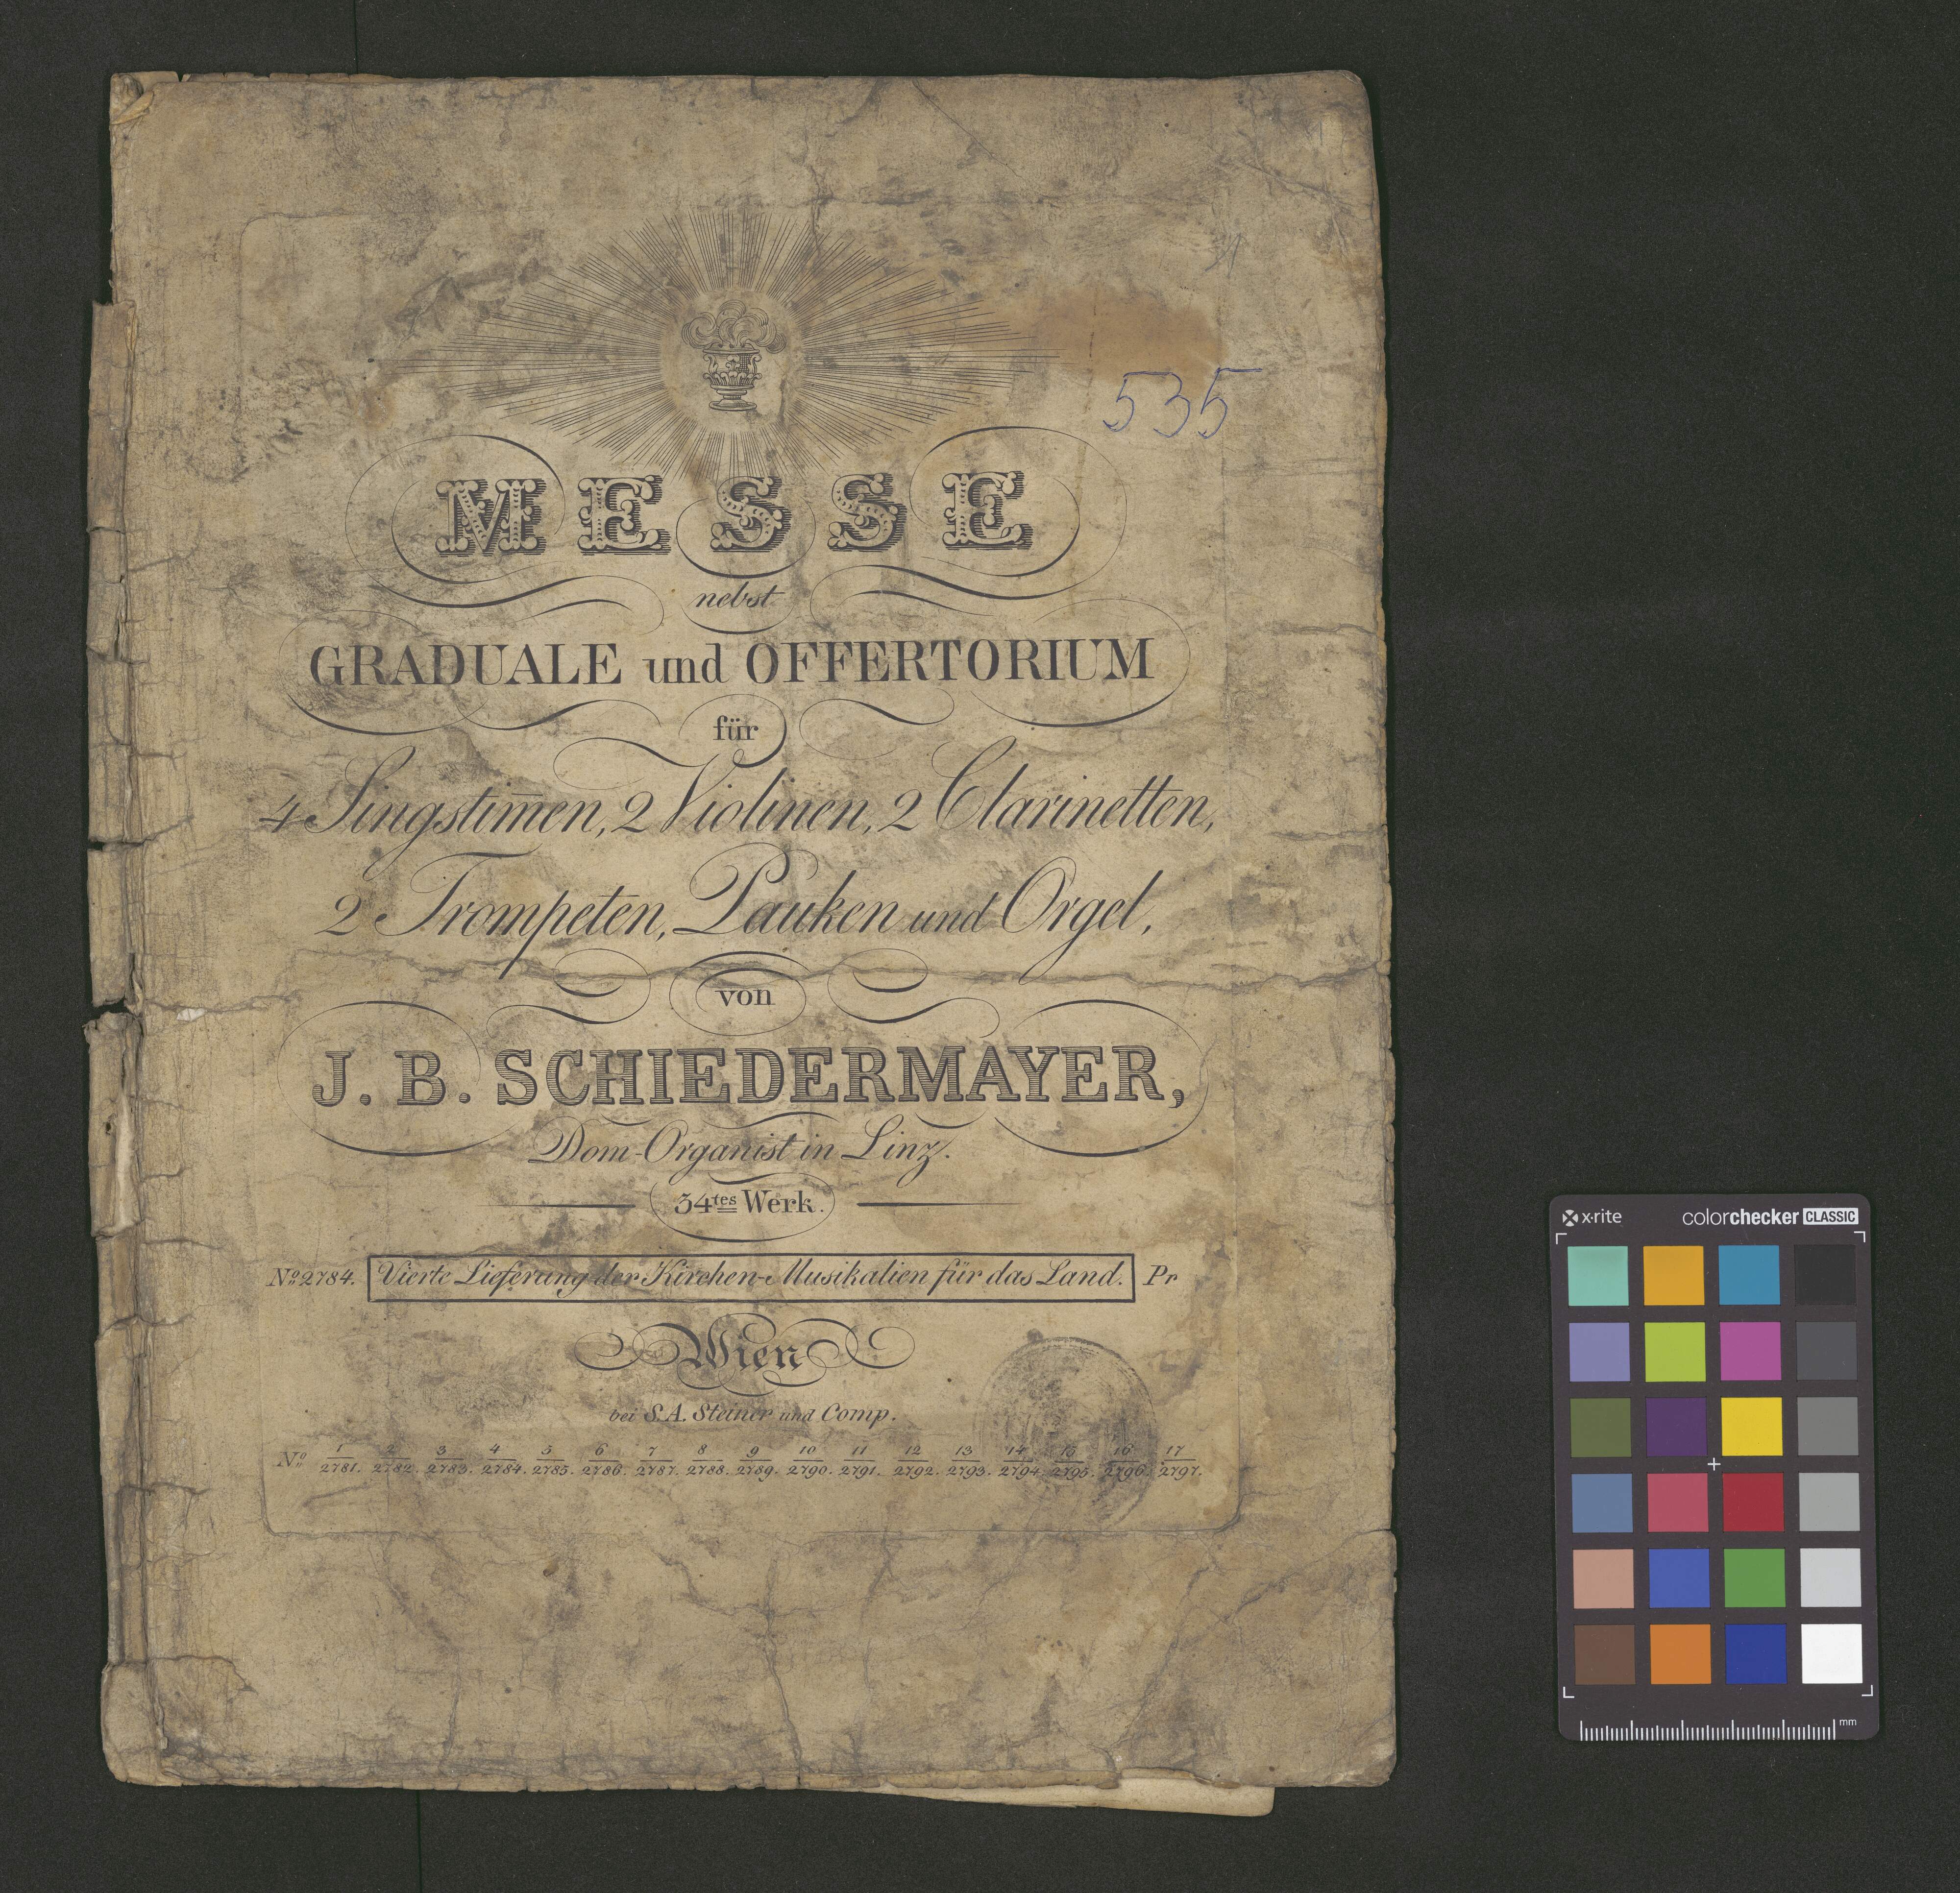 535
MESSE
nebst
GRADUALE und OFFERTORIUM
für
4 Singstim̅en, 2 Violinen, 2 Clarinetten,
2 Trompeten, Pauken und Orgel,
von
J. B. SCHIEDERMAYER,
Dom-Organist in Linz.
34tes Werk.
No 2784. Vierte Lieferung der Kirchen-Musikalien für das Land. Pr
Wien
bei S. A. Steiner und Comp.
No 1/2781. 2/2782. 3/2783. 4/2784. 5/2785. 6/2786. 7/2787. 8/2788. 9/2789. 10/2790. 11/2791. 12/2792. 13/2793. 14/2794. 15/2795. 16/2796. 17/2797.
x-rite colorchecker CLASSIC
mm